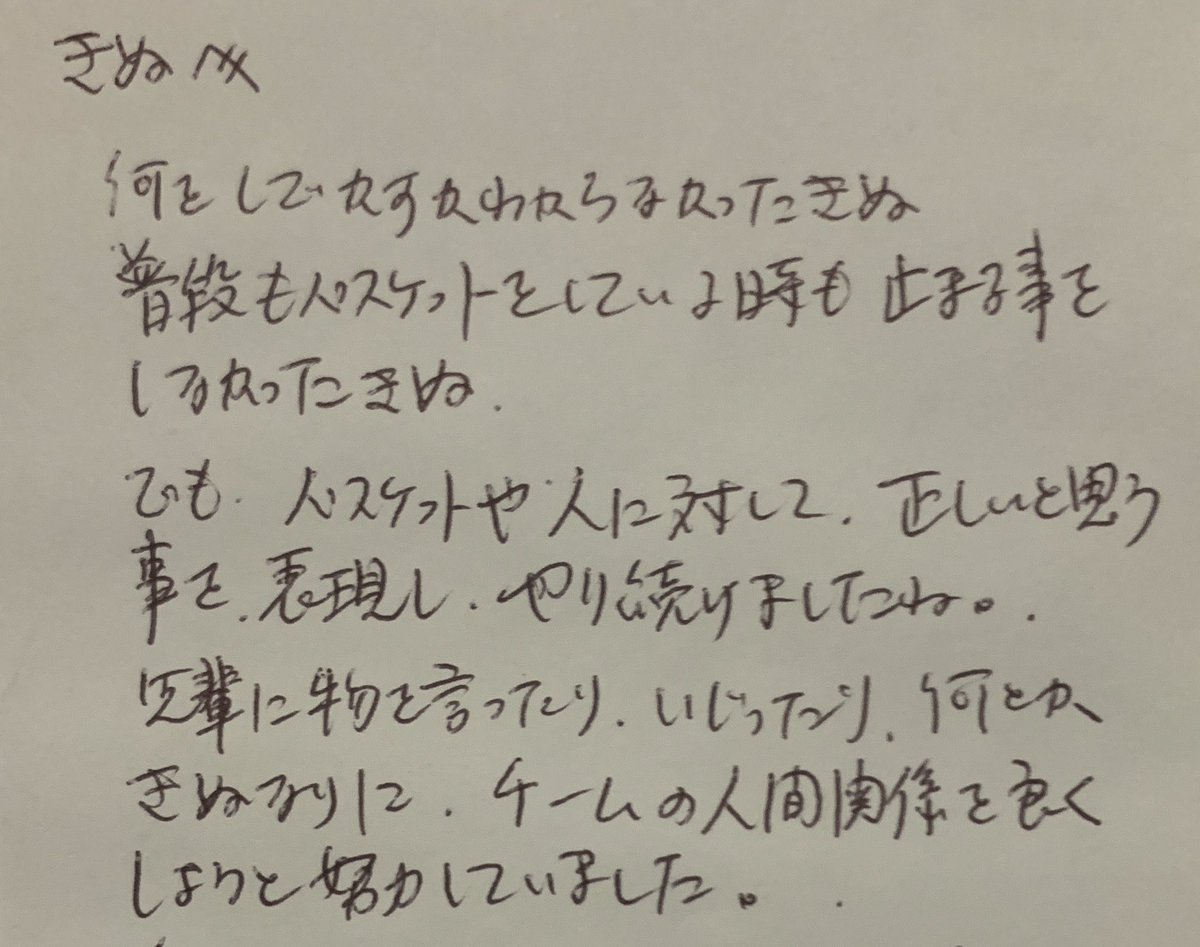 きぬへ
何をしでかすかわからなかったきぬ
普段もバスケットをしている時も止まる事を
しなかったきぬ.
でも.バスケットや人に対して.正しいと思う
事を.表現し.やり続けましたね。.
先輩に物を言ったり.いじったり.何とか
きぬなりに.チームの人間関係を良く
しようと努力していました。.